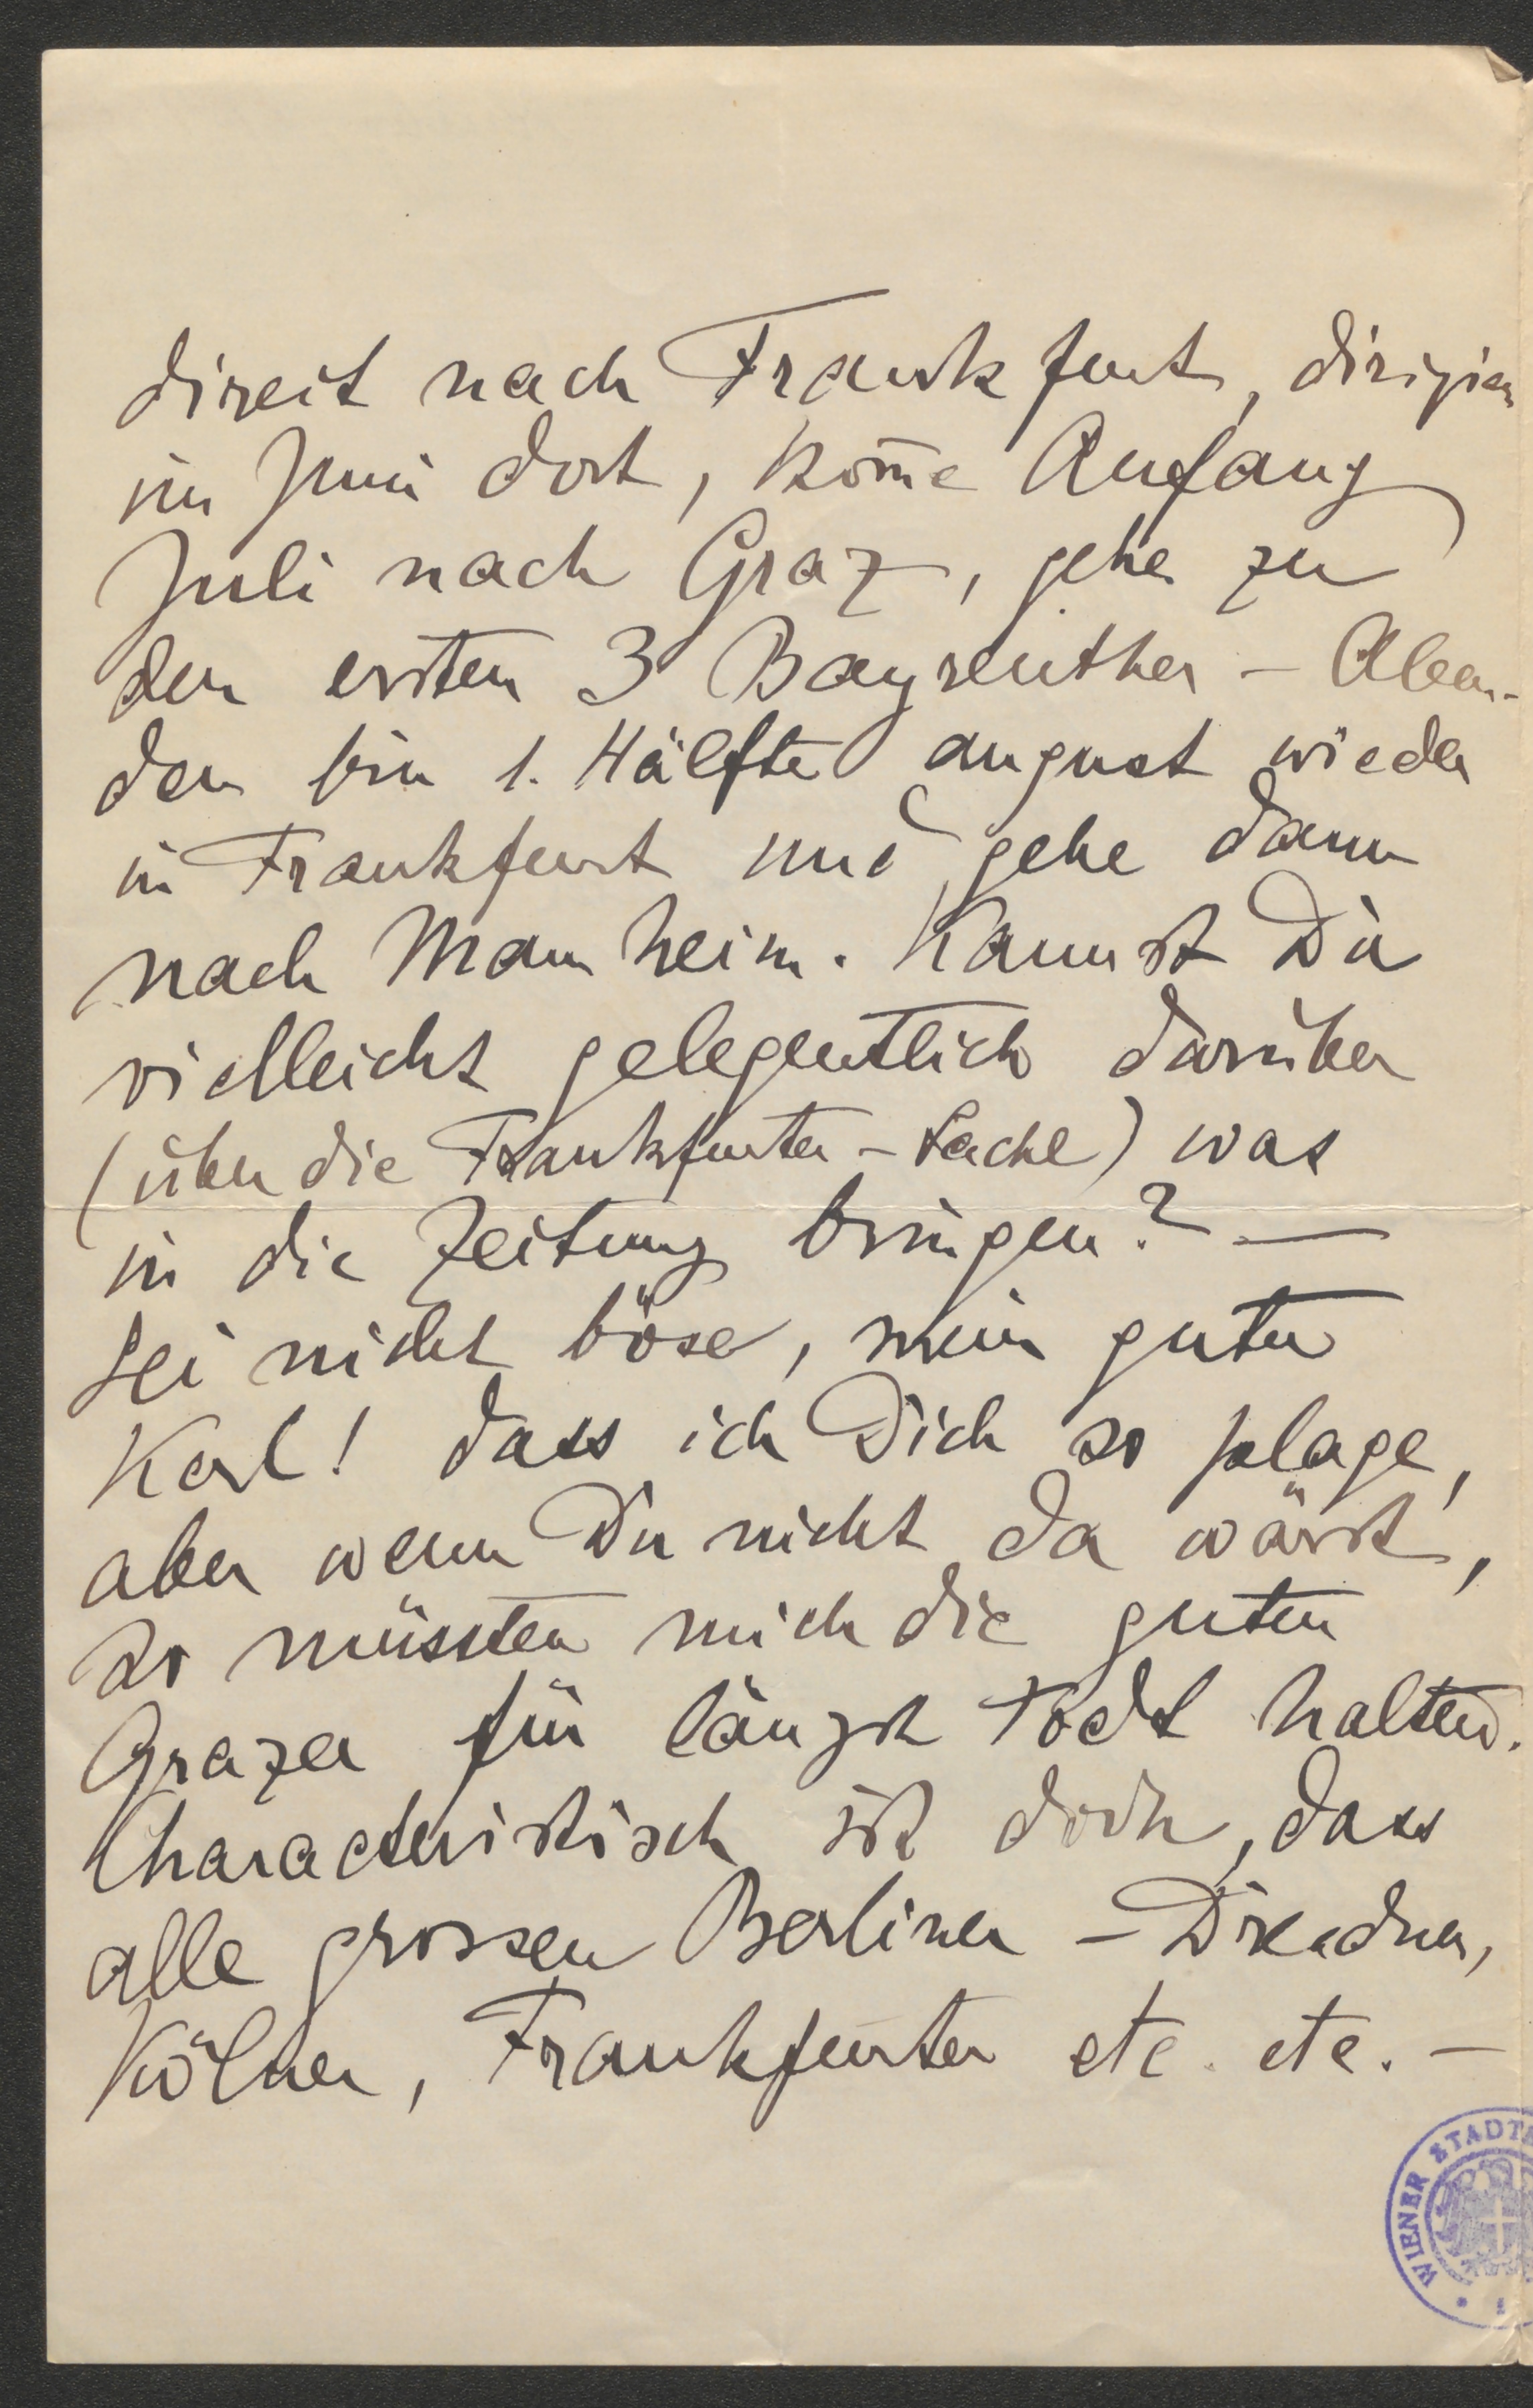 direct nach Frankfurt, dirigier
im Juni dort, kom̅e Anfang
Juli nach Graz, gehe zu
den ersten 3 Bayreuther - Aben-
den bin 1. Hälfte august wieder
in Frankfurt und gehe dann
nach Mannheim. Kannst Du
vielleicht gelegentlich darüber
(über die Frankfurter - Sache) was
in die Zeitung bringen? —
Sei nicht böse, mein guter
Karl! dass ich Dich so plage,
aber wenn Du nicht da wärst,
so müssten mich die guten
Grazer für längst todt halten.
Characteristisch ist doch, dass
alle grossen Berliner - Dresdner,
Kölner, Frankfurter etc. etc. —
WIENER STADT